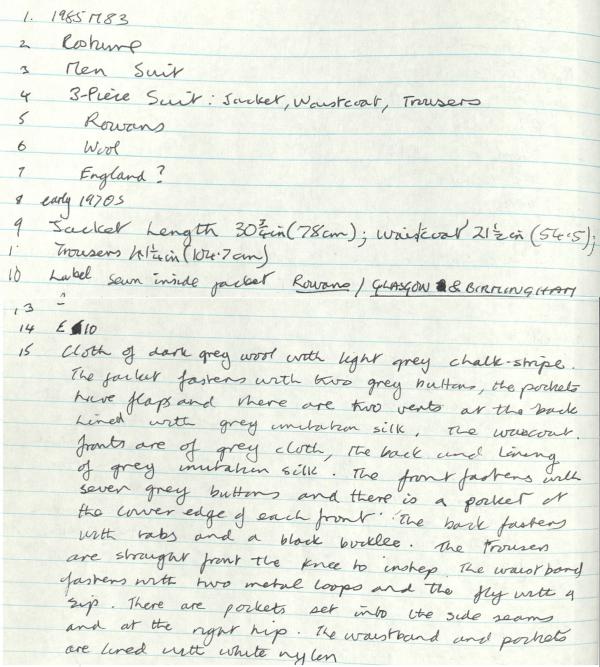 1. 1985 M83
2 Costume
3 Men Suit
4 3-Piece Suit: Jacket, Waistcoat, Trousers
5 Rowans
6 Wool
7 England?
8 early 1970s
9 Jacket Length 30¾in (78cm); waistcoat 21½in (54.5);
Trousers 41¼in (104.7cm)
10 Label sewn inside jacket Rowans / GLASGOW & BIRMINGHAM
13
14 E 10
15 Cloth of dark grey wool with light grey chalk-stripe.
The jacket fastens with two grey buttons, the pockets
have flaps and there are two vents at the back
Lined with grey imitation silk. The waistcoat
fronts are of grey cloth, the back and lining
of grey imitation silk. The front fastens with
seven grey buttons and there is a pocket at
the lower edge of each front. The back fastens
with tabs and a black buckle. The trousers
are straight from the knee to instep. The waistband
fastens with two metal loops and the fly with a
zip. There are pockets set into the side seams
and at the right hip. The waistband and pockets
are lined with white nylon